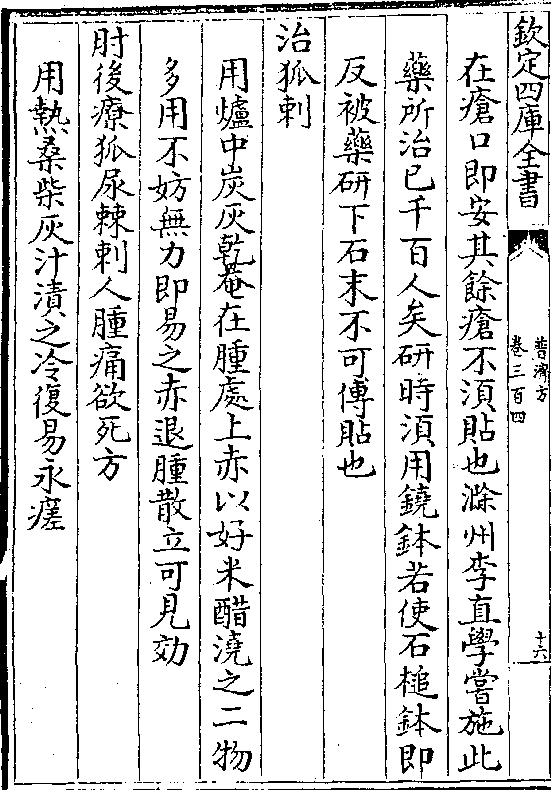 欽定四庫全書
普濟方
卷三百四
十六
在瘡口即安其餘瘡不須貼也滁州李直學嘗施此
藥所治已千百人矣研時須用鐃鉢若使石槌鉢即
反被藥研下石末不可傅貼也
治狐刺
用爐中炭灰乾菴在腫處上赤以好米醋澆之二物
多用不妨無力即易之赤退腫散立可見効
肘後療狐尿棘刺人腫痛欲死方
用熱桑柴灰汁漬之冷復易永瘥